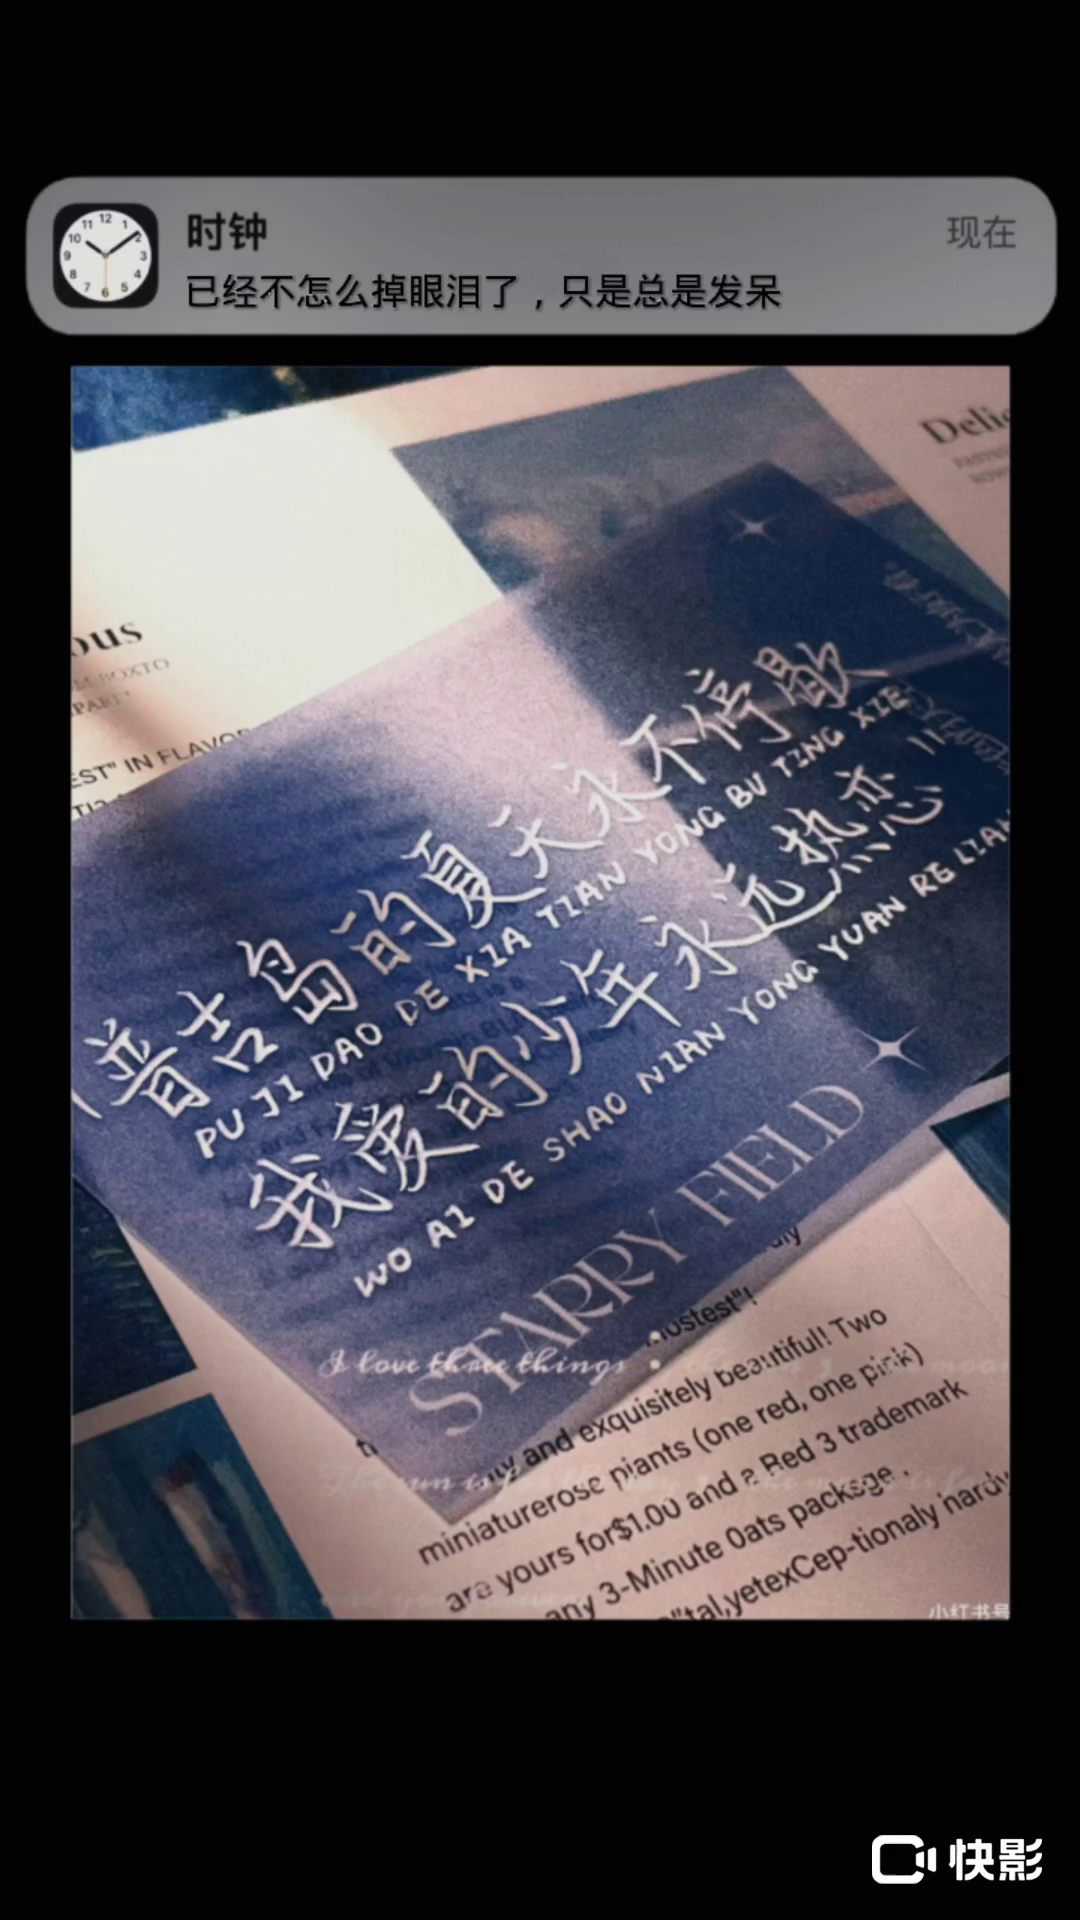 时钟
现在
已经不怎么掉眼泪了，只是总是发呆
12
11
1
10
2
9
3
8
4
7
5
6
Delic
ous
BOXTO
EST" IN FLAVOR
普吉岛的夏天永不停歇
PU JI DAO DE XIA TIAN YONG BU TING XIE
我爱的少年永远热恋
WO AI DE SHAO NIAN YONG YUAN RE LIAN
STARRY FIELD
I love three things
nostest"!
and exquisitely beautiful! Two
miniaturerose piants (one red, one pink)
are yours for$1.00 and a Red 3 trademark
any 3-Minute Oats package .
"tal,yetexCep-tionaly hardy
小红书号
快影